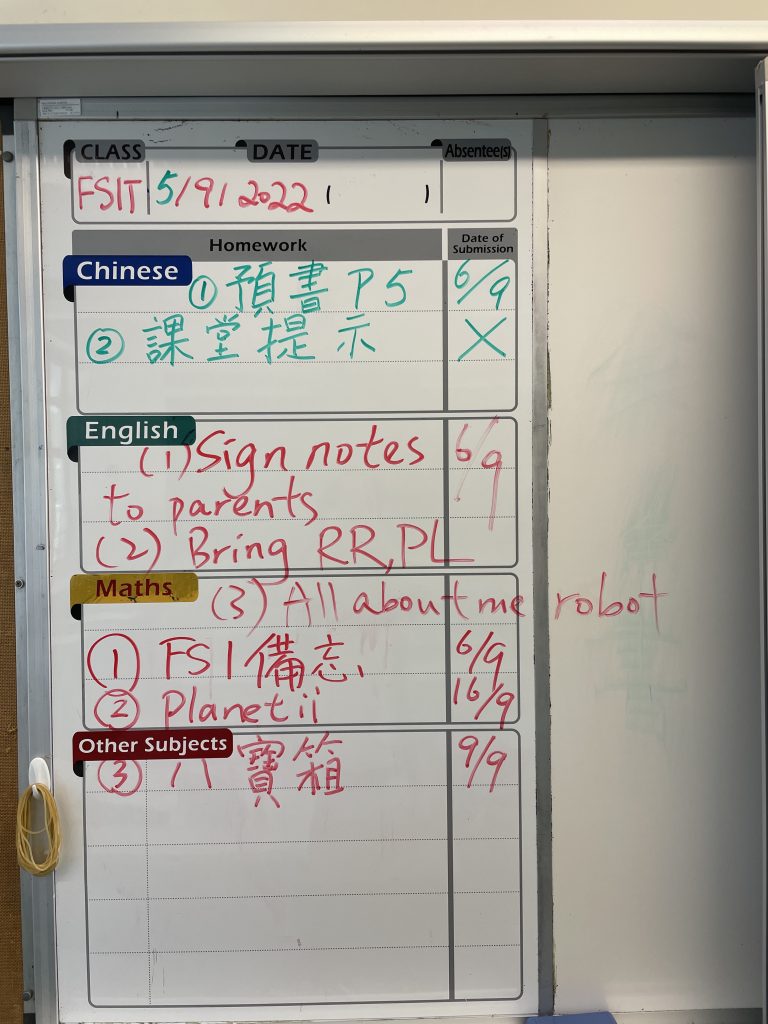 CLASS DATE Absentee(s)
FSIT 5/9/2022 ( )
Homework Date of Submission
Chinese
① 預書 P5 6/9
② 課堂提示 ×
English
(1) Sign notes 6/9
to parents
(2) Bring RR, PL
Maths
(3) All about me robot
① FSI 備忘 6/9
② Planetii 16/9
Other Subjects
③ 八寶箱 9/9